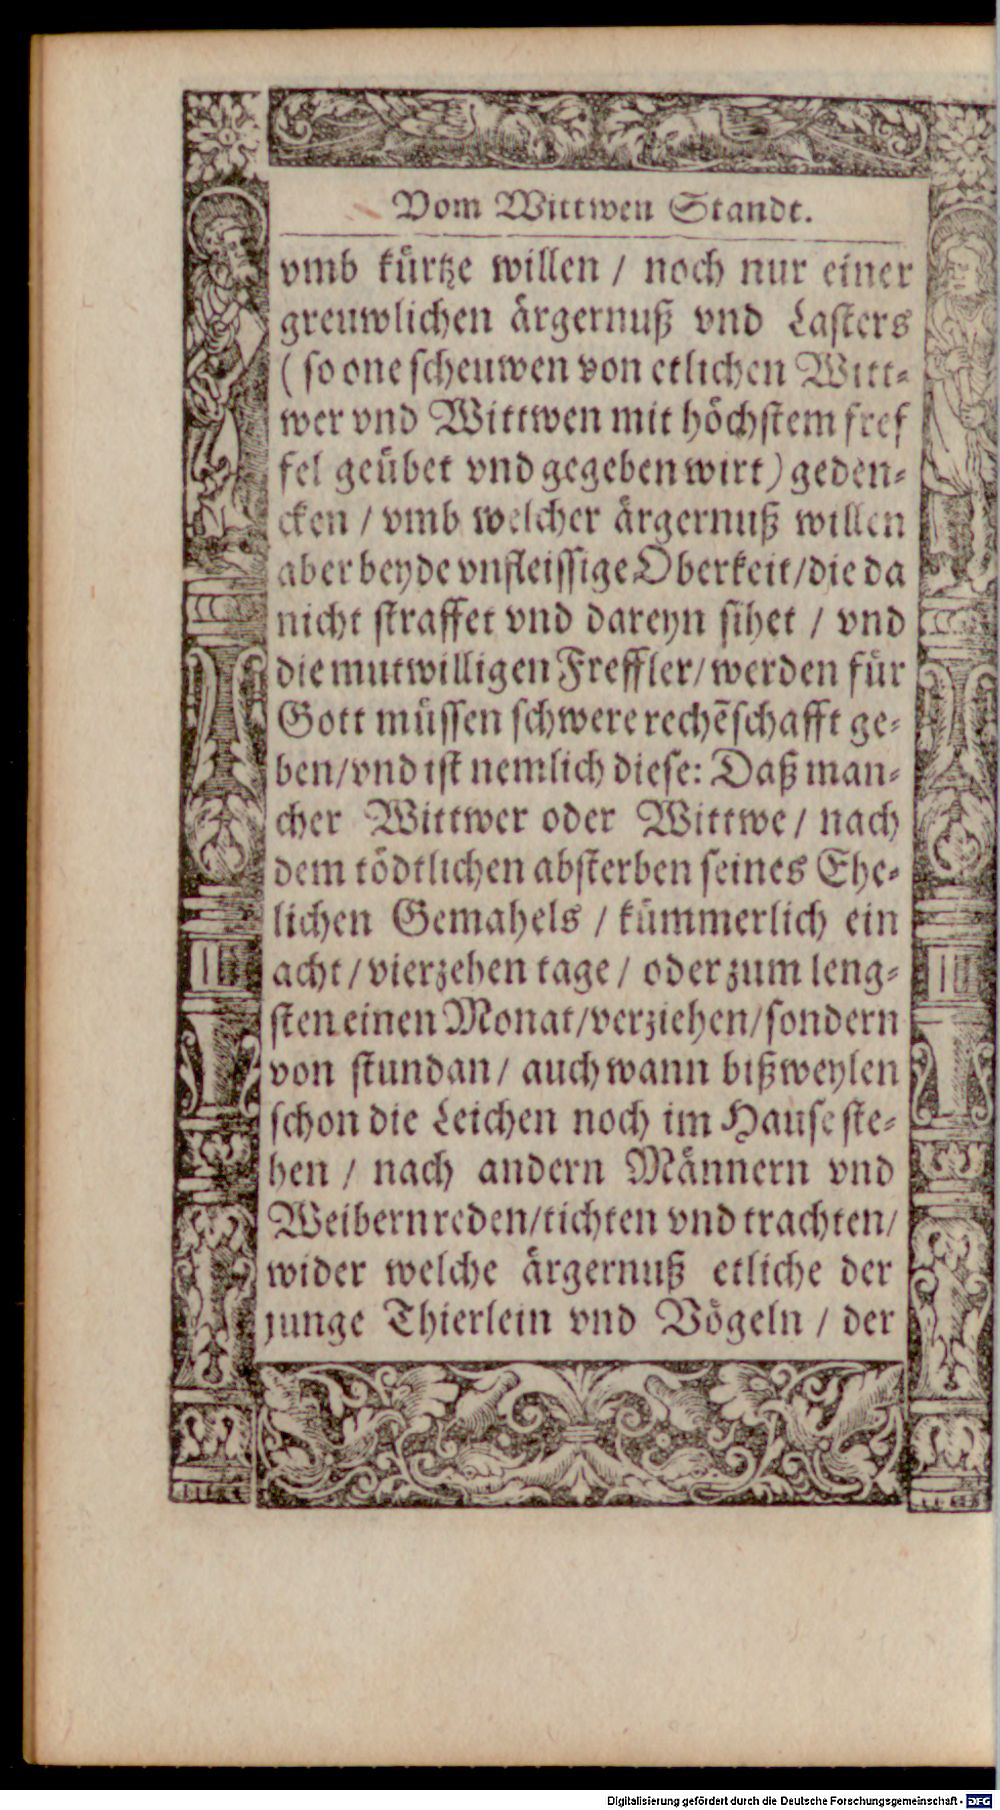 Vom Wittwen Standt.
vmb kürtze willen / noch nur einer
greuwlichen ärgernuß vnd Lasters
( so one scheuwen von etlichen Witt-
wer vnd Wittwen mit höchstem fref
fel geübet vnd gegeben wirt) geden-
cken / vmb welcher ärgernuß willen
aber beyde vnfleissige Oberkeit/die da
nicht straffet vnd dareyn sihet / vnd
die mutwilligen Freffler/werden für
Gott müssen schwere rechẽschafft ge-
ben/vnd ist nemlich diese: Daß man-
cher Wittwer oder Wittwe / nach
dem tödtlichen absterben seines Ehe-
lichen Gemahels / kümmerlich ein
acht/vierzehen tage / oder zum leng-
sten einen Monat/verziehen/sondern
von stundan / auch wann bißweylen
schon die Leichen noch im Hause ste-
hen / nach andern Männern vnd
Weibern reden/tichten vnd trachten/
wider welche ärgernuß etliche der
junge Thierlein vnd Vögeln / der
Digitalisierung gefördert durch die Deutsche Forschungsgemeinschaft - DFG